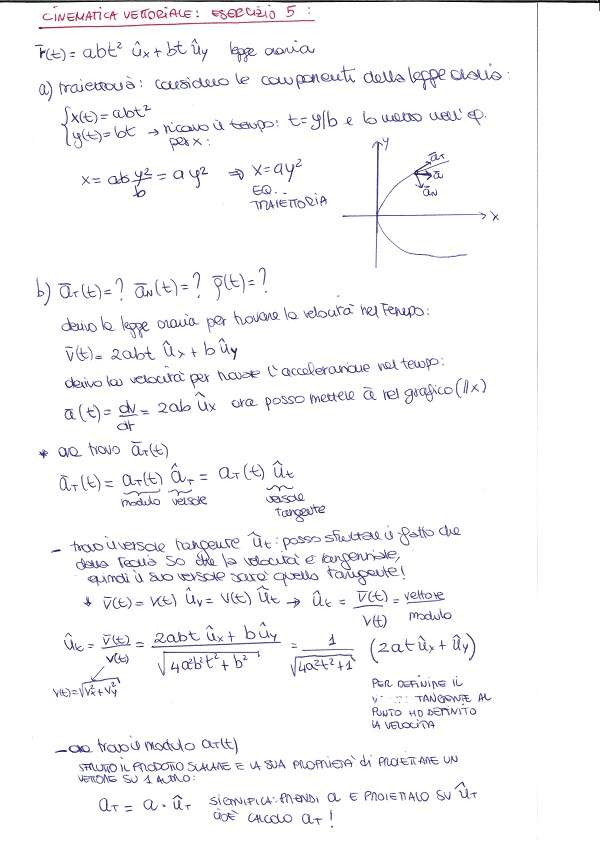 CINEMATICA VETTORIALE: ESERCIZIO 5:
r̄(t) = abt² ûx + bt ûy legge oraria
a) traiettoria: considero le componenti della legge oraria:
{x(t) = abt²
{y(t) = bt → ricavo il tempo: t = y/b e lo metto nell'eq.
per x:
x = ab y²/b = a y² ⇒ x = ay²
EQ.
TRAIETTORIA
y
āT
ā
āN
x
b) āT(t) = ? āN(t) = ? ρ̄(t) = ?
derivo la legge oraria per trovare la velocità nel tempo:
v̄(t) = 2abt ûx + b ûy
derivo la velocità per trovare l'accelerazione nel tempo:
ā(t) = dv/dt = 2ab ûx ora posso mettere ā nel grafico (// x)
* ora trovo āT(t)
āT(t) = aT(t) âT = aT(t) ût
modulo versore versore
tangente
- trovo il versore tangente ût: posso sfruttare il fatto che
dalla teoria so che la velocità è tangenziale,
quindi il suo versore sarà quello tangente!
* v̄(t) = v(t) ûv = v(t) ût → ût = v̄(t)/v(t) = vettore/modulo
ût = v̄(t)/v(t) = (2abt ûx + b ûy)/√(4a²b²t² + b²) = 1/√(4a²t² + 1) (2at ûx + ûy)
v(t) = √(vx² + vy²)
PER DEFINIRE IL
TANGENTE AL
PUNTO HO DEFINITO
LA VELOCITÀ
- ora trovo il modulo aT(t)
SFRUTTO IL PRODOTTO SCALARE E LA SUA PROPRIETÀ di PROIETTARE UN
VETTORE SU 1 ALTRO:
aT = a · ûT SIGNIFICA: PRENDI a E PROIETTALO SU ûT
CIOÈ CALCOLO aT!